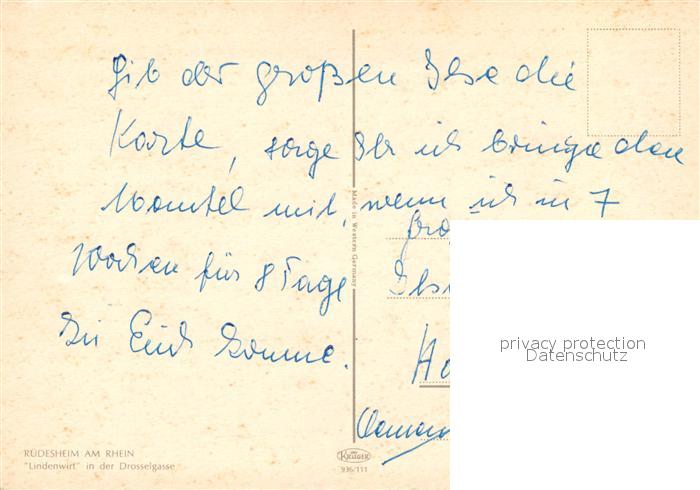 Gib der großen Ilse die
Karte, sage Ihr ich bringe den
Mantel mit, wenn ich in 7
Wochen für 8 Tage
zu Euch komme.
Made in Western Germany
privacy protection
Datenschutz
RÜDESHEIM AM RHEIN
"Lindenwirt" in der Drosselgasse
KRÜGER
936/111